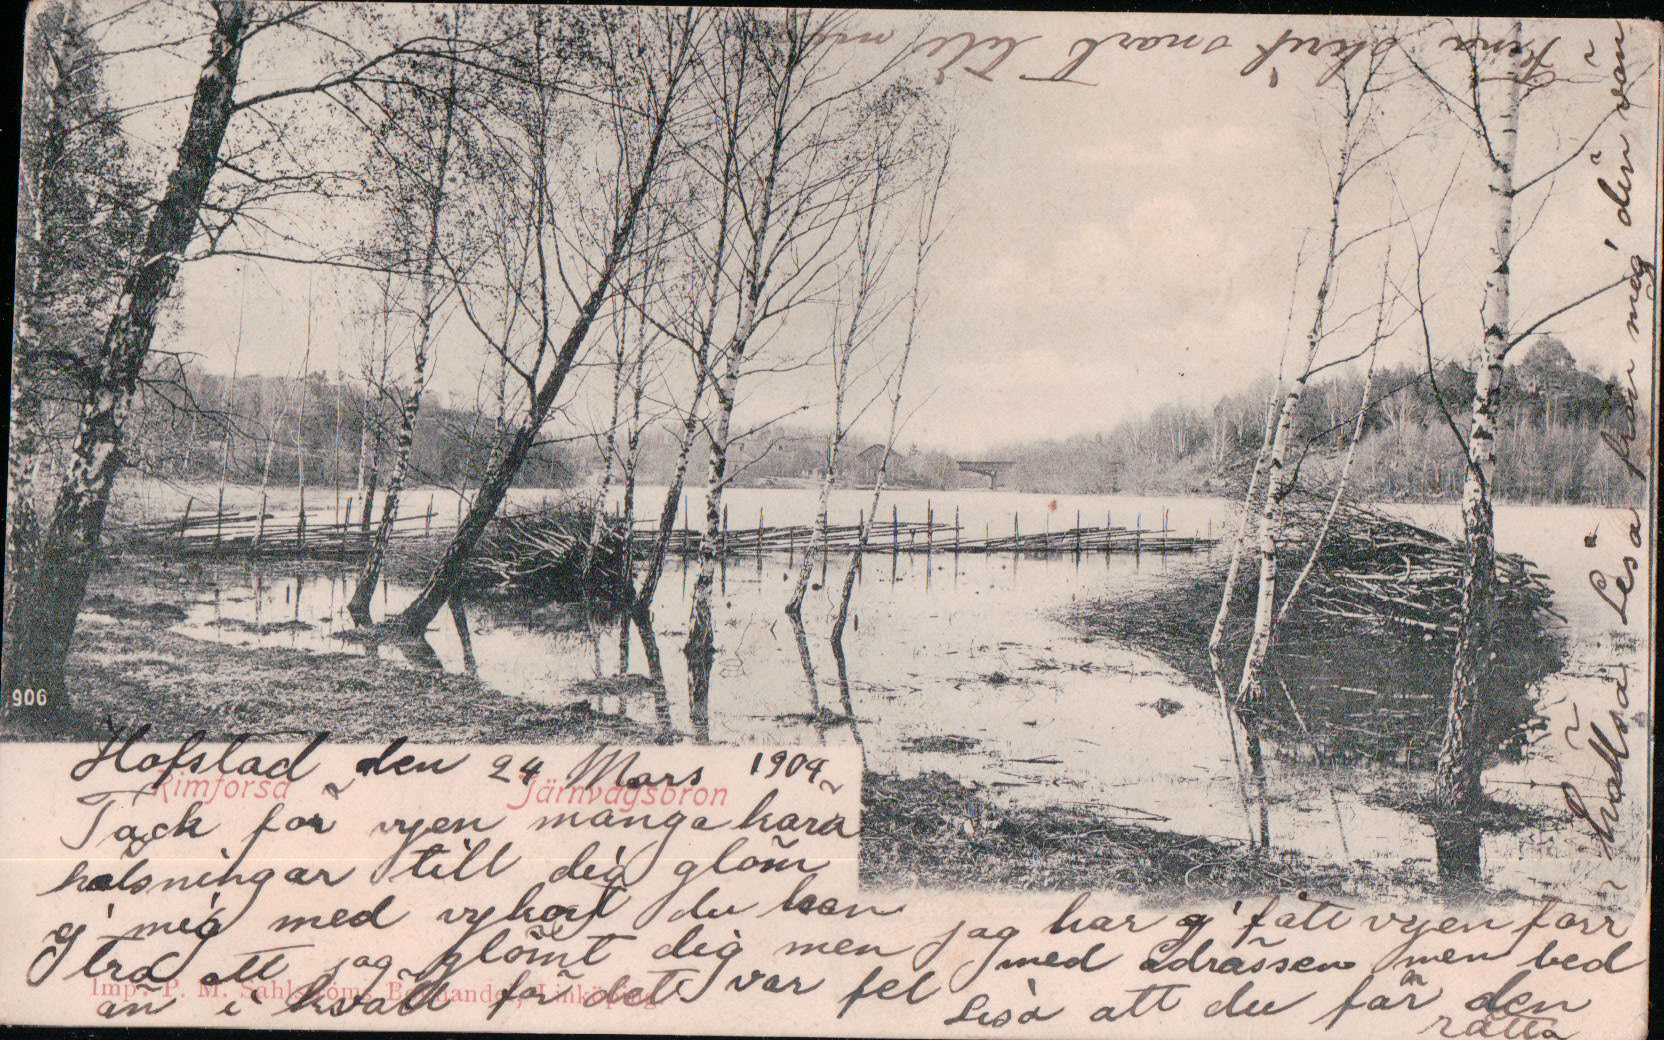 906
Hofstad den 24 Mars 1904
Rimforsa Järnvägsbron
Tack för vyen många kära
hälsningar till dig glöm
ej mig med vykort du kan
jag har ej fått vyen förr
tro att jag glömt dig men
med adrässen men bed
Imp. P. M. Sahlströms Bokhandel, Linköping
än i kväll för det var fel
Lisa att du får den
rätta
hälsa Lisa från mig din vän
skrif snart till mig